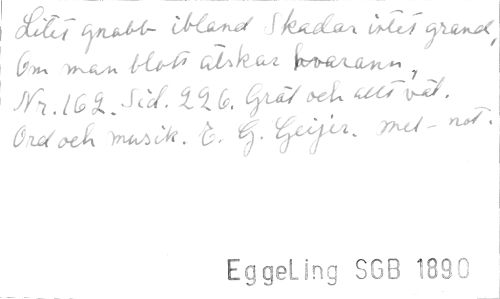 Litet gnabb ibland skadar intet grand,
Om man blott älskar hvarann,
Nr. 162. Sid. 226. Gråt och allt vät.
Ord och musik. E. G. Geijer. mel-not.
EggeLing SGB 1890